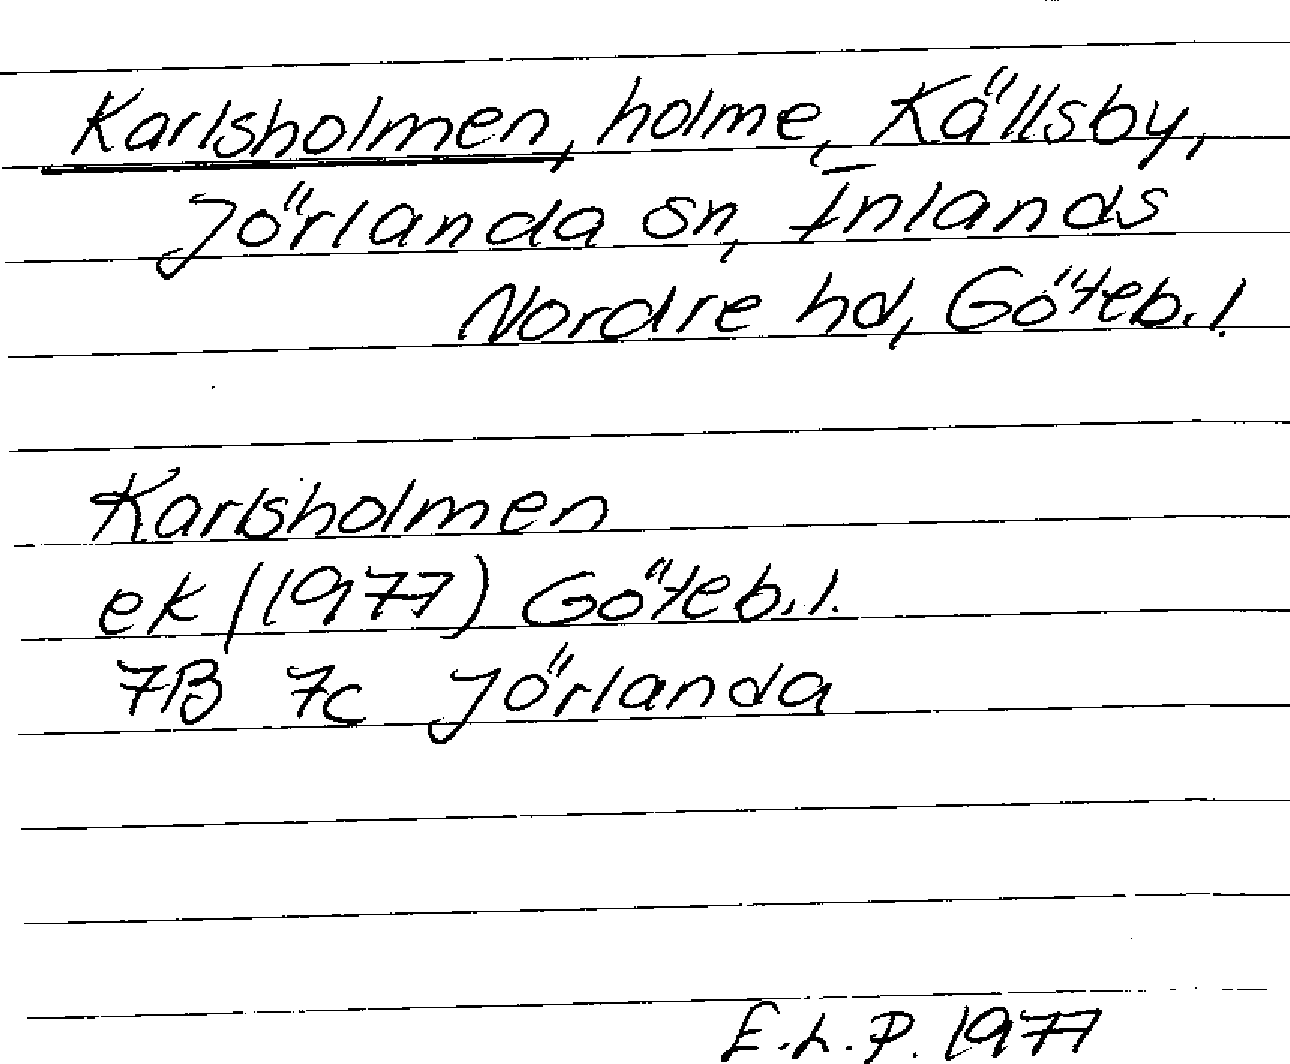 Karlsholmen, holme, Källsby,
Jörlanda sn, Inlands
Nordre hd, Göteb.l.
Karlsholmen
ek/(1977) Göteb.l.
7B 7c Jörlanda
E.L.P. 1977